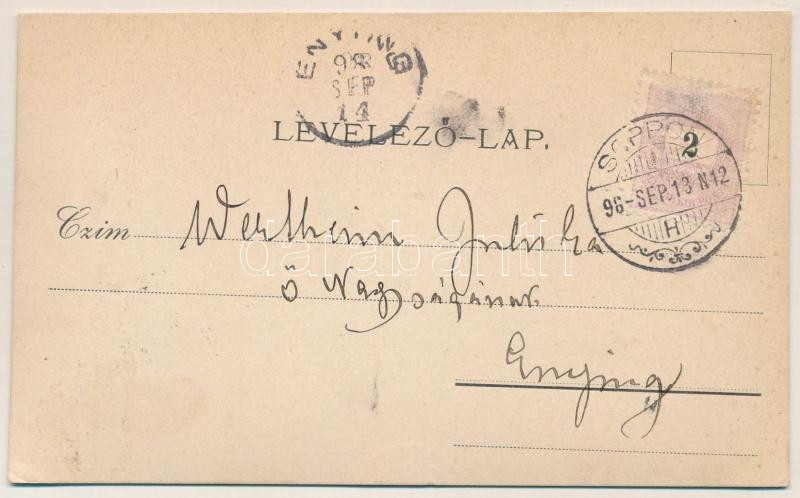 ENYING
98
SEP
14
LEVELEZŐ-LAP.
2
SOPRON
96-SEP.13 N12
H
Czim Wertheim Juliska
ő Nagyságának
Enying
darabanth